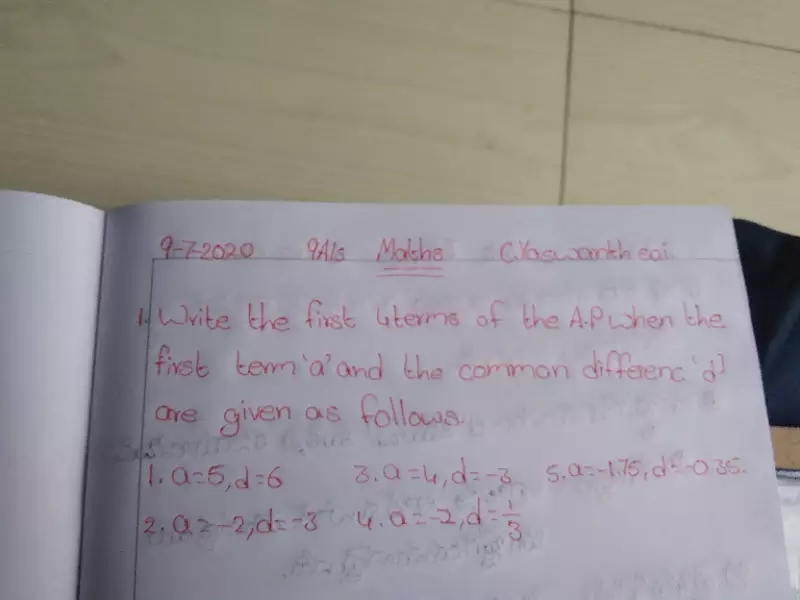 9-7-2020 9A1s Maths C.Yaswanth sai
1. Write the first 4terms of the A.P when the
first term 'a' and the common differenc 'd'
are given as follows.
1. a=5, d=6 3. a=4, d=-3 5. a=-1.75, d=-0.35.
2. a=-2, d=-3 4. a=-2, d=1/3